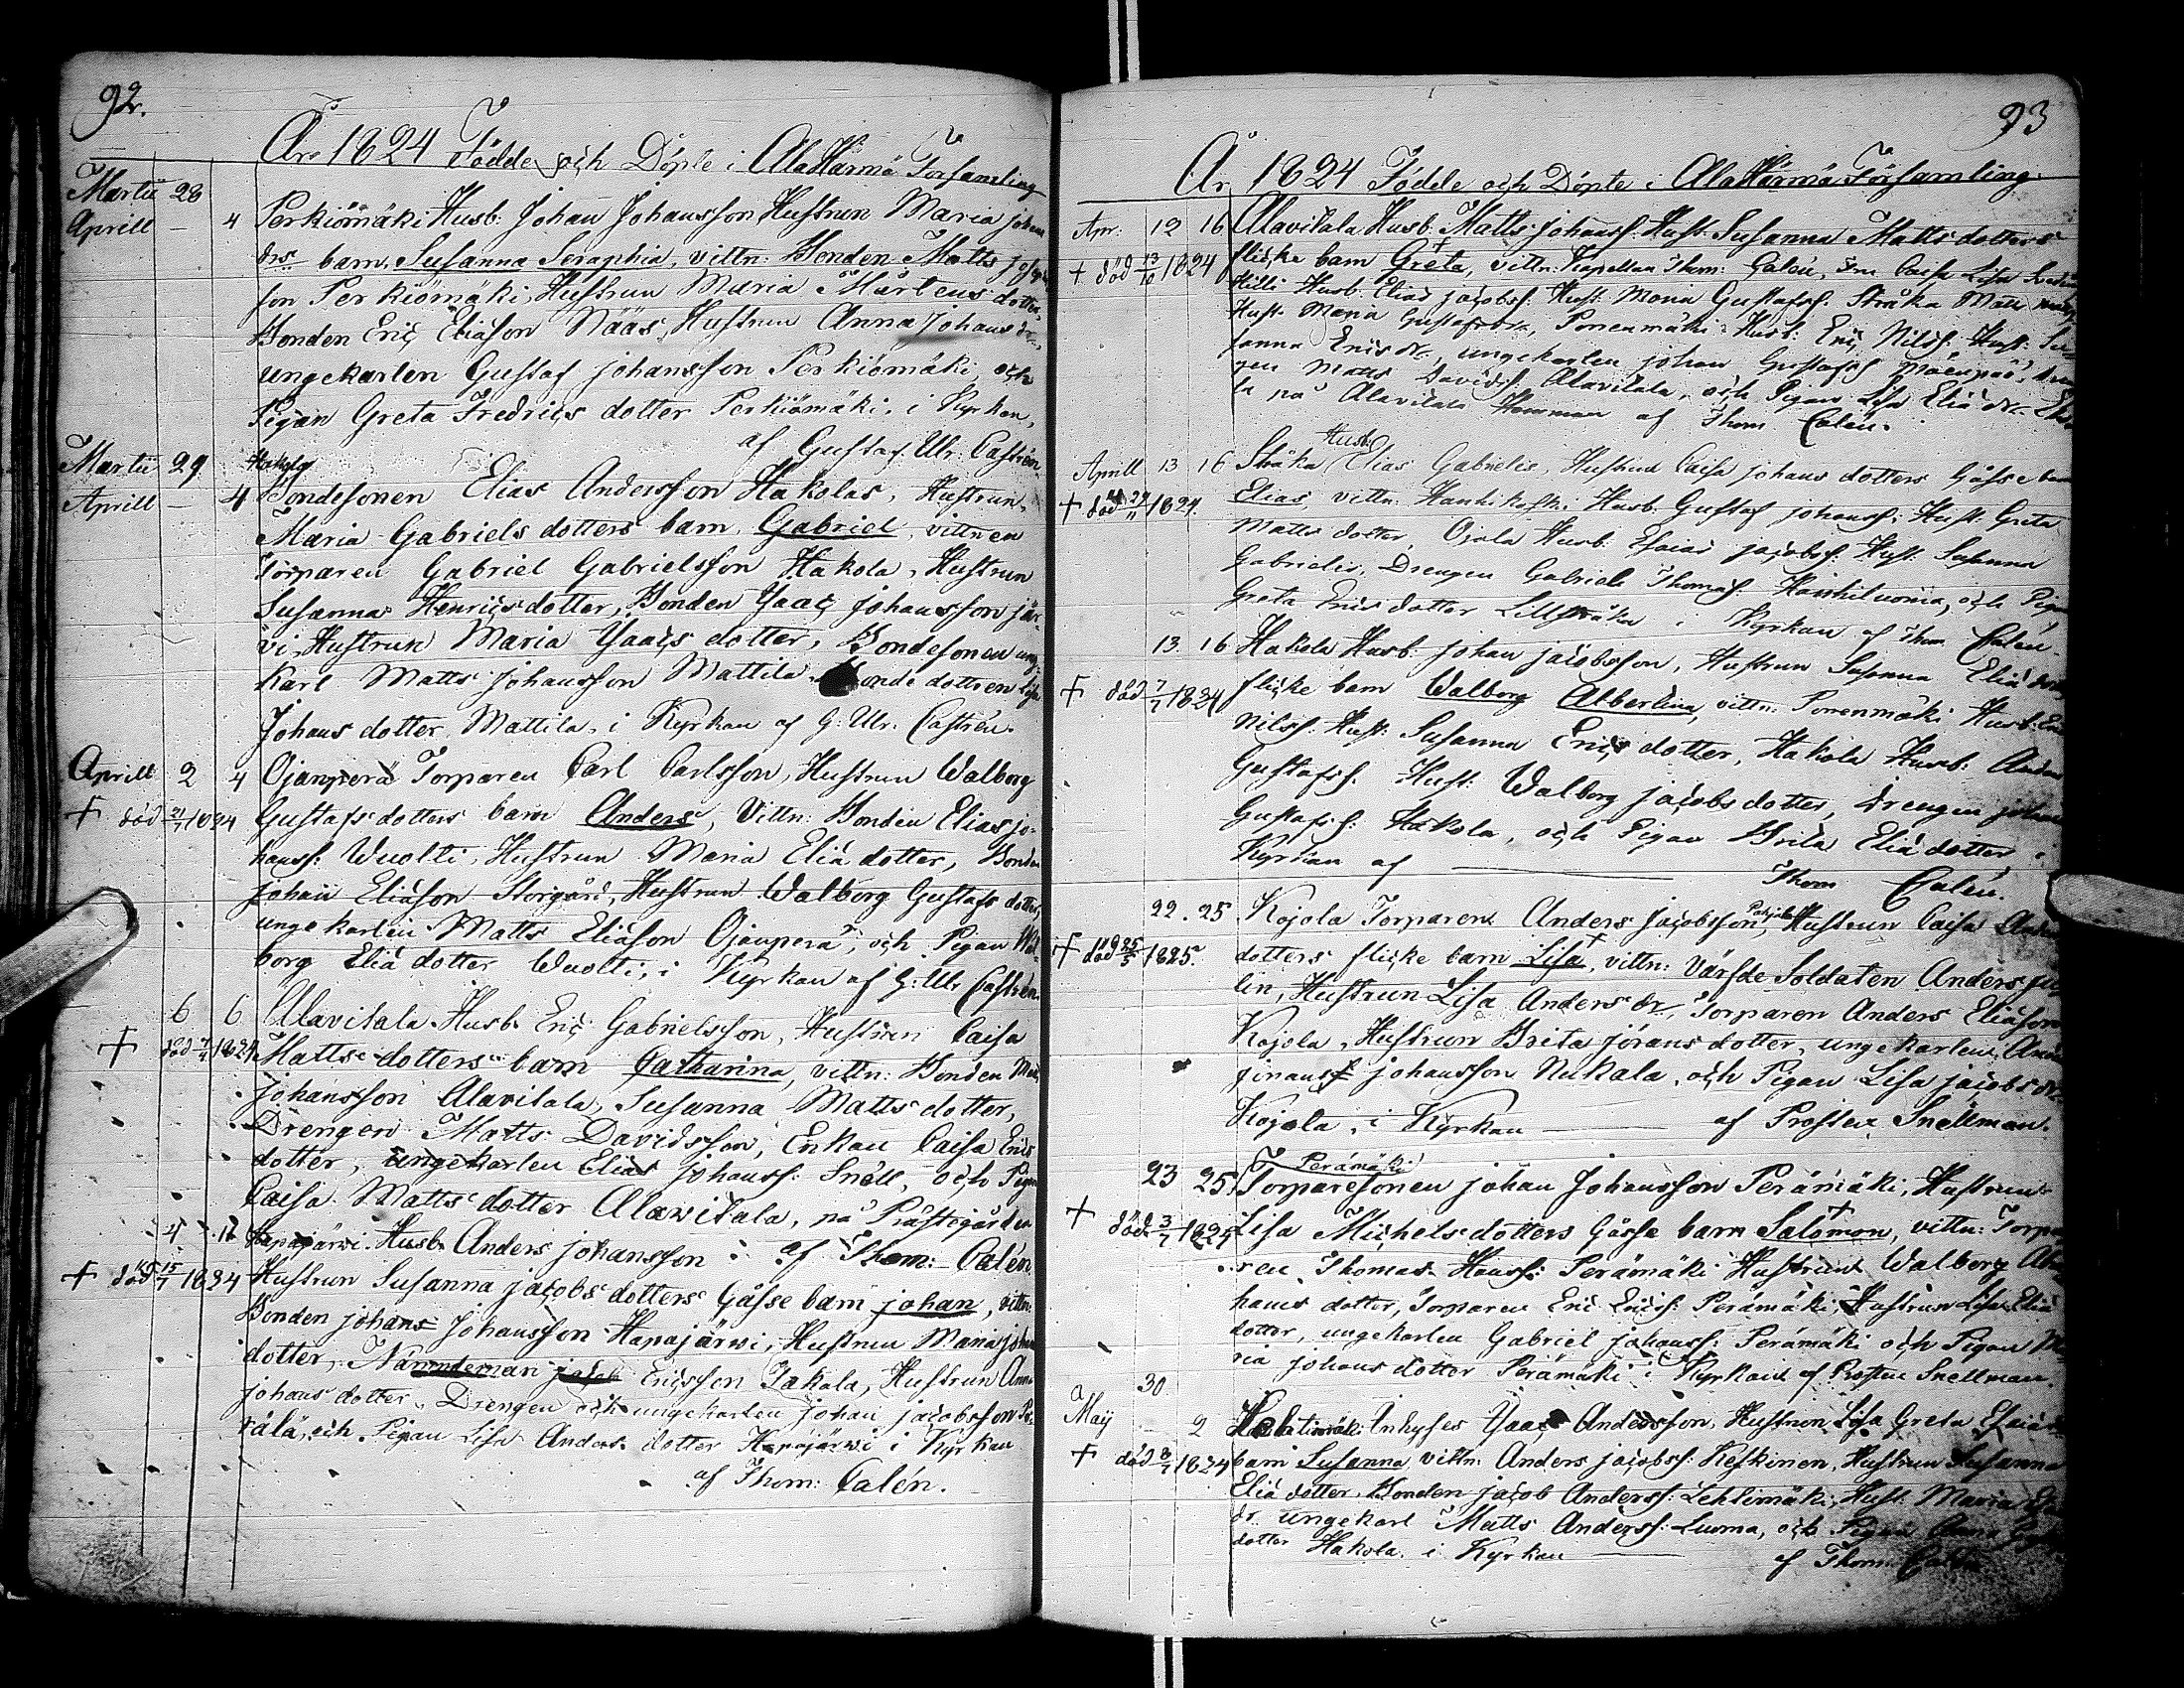 92.
År 1824 Födde och Döpte i AlaHärmä Församling
Martii 28
Aprill — 4 Perkiömäki Husb: Johan Johansson Hustrun Maria johans
drs barn Susanna Seraphia, vittn: Bonden Matts
son Perkiömäki, Hustrun Maria Mårtens dotter
Bonden Eric Eliäson Nääs, Hustrun Anna Johans dr,
ungekarlen Gustaf johansson Perkiömäki och
Pigan Greta Fredrics dotter Perkiömäki, i Kyrkan,
af Gustaf Ulr: Castrén
Martii 29 Hakola
Aprill — 4 Bondesonen Elias Andersson Hakolas, Hustrun
Maria Gabriels dotters barn Gabriel, vittnen
Torparen Gabriel Gabrielsson Hakola, Hustrun
Susanna Henricsdotter, Bonden Ysaac johansson jär-
vi, Hustrun Maria Ysaacs dotter, Bondesonen ung-
karl Matts johansson Mattila Bonde dottren Lisa
Johans dotter Mattila, i Kyrkan af G: Ulr. Castrén.
Aprill 2 4 Ojanperä Torparen Carl Carlsson, Hustrun Walborg
+ död 21/7 1824 Gustafs dotters barn Anders, Vittn: Bonden Elias jo-
hanss: Wuolti, Hustrun Maria Eliä dotter, Bonden
johan Eliäson Storgård, Hustrun Walborg Gustafs dotter,
ungekarlen Matts Eliäson Ojanperä, och Pigan Wal-
borg Eliä dotter Wuolti, i Kyrkan af G: Ulr Castrén.
6 6 Alavitala Husb. Eric Gabrielsson, Hustrun Caisa
+ död 7/4 1824 Matts dotters barn Catharina, vittn: Bonden Matts
johansson Alavitala, Susanna Matts dotter,
Drengen Matts Davidsson, Enkan Caisa Erics
dotter, ungekarlen Elias johanss: Snell, och Pigan
Caisa Matts dotter Alawitala, på Prästegården
af Thom: Calén.
4 12 Hapajärwi Husb Anders johansson
+ död 15/7 1834 Hustrun Susanna jacobs dotters Gåsse barn johan, vittn:
Bonden johans Johansson Hapajärwi, Hustrun Maria johans
dotter, Nämndeman jacob Ericsson Jakola, Hustrun Anna
johans dotter, Drengen och ungekarlen johan jacobsson
rälä, och Pigan Lisa Anders dotter Hapajärwi i Kyrkan
af Thom: Calén.
93
År 1824 Födde och Döpte i AlaHärmä Församling.
Apr: 12 16 Alavitala Husb. Matts johanss: Hust: Susanna Matts dotters
+ död 13/10 1824 flicke barn Greta, vittn: Capellan Thom: Calén, Fru Caisa Lisa
Hilli Husb. Elias jacobss: Hust: Maria Gustafs: Stråka Matts
Hust: Maria Gustafsdr, Ponenmäki Husb: Eric Nilss: Hust: Su-
sanna Erics dr, ungekarlen johan Gustafss Mäenpää, Dren-
gen Matts Davidss: Alavitala, och Pigan Lisa Eliä dr
på Alavitala Hemman af Thom Calén.
Aprill 13 16 Stråka Husb: Elias Gabrielis, Hustrun Caisa johans dotters Gåsse barn
+ död 29/11 1824. Elias, vittn: Hanhikoski Husb. Gustaf johanss: Hust: Greta
Matts dotter, Ojala Husb. Esaias jacobss: Hust: Susanna
Gabrielis, Drengen Gabriel Thomass: Hanhiluoma, och Pigan
Greta Erics dotter Lillstråka i Kyrkan af Thom Calén.
13. 16 Hakola Husb. johan jacobsson, Hustrun Susanna Eliä dotters
+ död 7/7 1834 flicke barn Walborg Albertina, vittn: Ponenmäki Husb: Eric
Nilss: Hust: Susanna Erics dotter, Hakola Husb: Anders
Gustafss. Hust: Walborg jacobs dotter, Drengen johan
Gustafss: Hakola, och Pigan Brita Eliä dotter i
Kyrkan af Thom Calén.
22. 25 Kojola Torparens Anders jacobsson Hustrun Caisa Anders
+ död 25/5 1825. dotters flicke barn Lisa, vittn: Värfde Soldaten Anders
lin, Hustrun Lisa Anders dr, Torparen Anders Eliäson
Kojola, Hustrun Brita jörans dotter, ungekarlen
johansson Nukala, och Pigan Lisa jacobs dr
Kojola, i Kyrkan af Prosten Snellman.
Perämäki
23 25 Torparesonen johan Johansson Perämäki, Hustrun
+ död 3/7 1824 Lisa Michels dotters Gåsse barn Salomon, vittn: Torpa-
ren Thomas Hanss: Perämäki Hustrun Walborg
hans dotter, Torparen Eric Ericss: Perämäki, Hustrun Lisa Eliä
dotter, ungekarlen Gabriel johanss: Perämäki och Pigan Ma-
ria johans dotter Perämäki i Kyrkan af Prosten Snellman.
30
Maij — 2 Inhyses Ysaac Andersson, Hustrun Lisa Greta Esaiæ
+ död 8/7 1824 barn Susanna vittn: Anders jacobss: Keskinen, Hustrun Susanna
Eliä dotter, Bonden jacob Anderss: Lehtimäki, Hust: Maria
dr ungekarl Matts Anderss: Luoma, och Pigan Anna
dotter Hakola. i Kyrkan af Thom: Calén